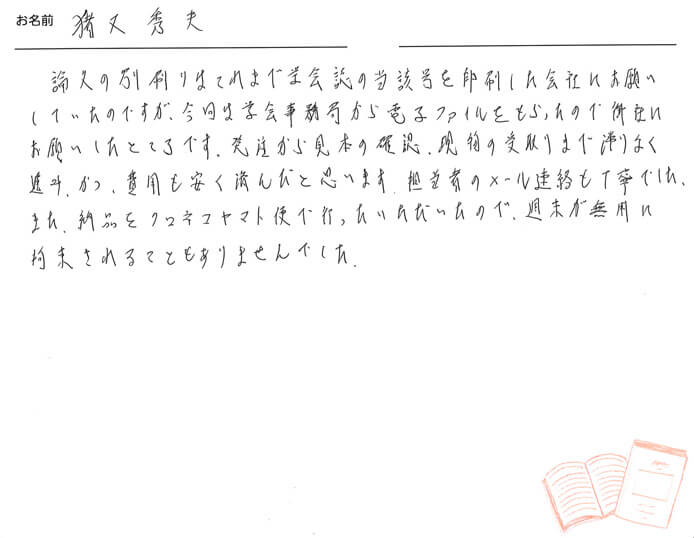 お名前 猪又 秀夫
論文の別刷りはこれまで学会誌の当該号を印刷した会社にお願い
していたのですが、今回は学会事務局から電子ファイルをもらったので御社に
お願いしたところです。発注から見本の確認、現物の受取りまで滞りなく
進み、かつ、費用も安く済んだと思います。担当者のメール連絡も丁寧でした。
また、納品をクロネコヤマト便で行っていただいたので、週末が無用に
拘束されることもありませんでした。